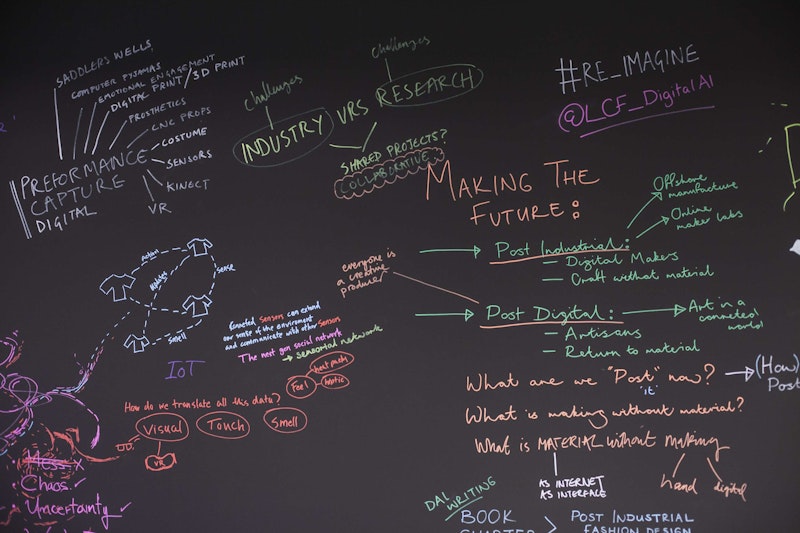 SADDLERS WELLS
COMPUTER PYJAMAS
EMOTIONAL ENGAGEMENT
DIGITAL PRINT / 3D PRINT
PROSTHETICS
CNC PROPS
COSTUME
SENSORS
KINECT
VR
PREFORMANCE
CAPTURE
DIGITAL
challenges
challenges
INDUSTRY VRS RESEARCH
SHARED PROJECTS?
COLLABORATIVE
#RE_IMAGINE
@LCF_DigitalAI
MAKING THE
FUTURE:
Post Industrial:
– Digital Makers
– Craft without material
Offshore
manufacture
Online
maker labs
everyone is
a creative
producer
Post Digital:
– Artisans
– Return to material
Art in a
conneted
world
sense
smell
Conneted Sensors can extend
our sense of the enviroment
and communicate with other Sensors
The next gen social network
→ sensorial networks
IoT
How do we translate all this data?
Visual
Touch
Smell
Feel
heat pads
haptic
VR
Mess X
Chaos ✓
Uncertainty ✓
What are we "Post" now?
'it'
(How)
Post
What is making without material?
What is MATERIAL without making
AS INTERNET
AS INTERFACE
hand
digital
DAL WRITING
BOOK
CHAPTER
>
POST INDUSTRIAL
FASHION DESIGN